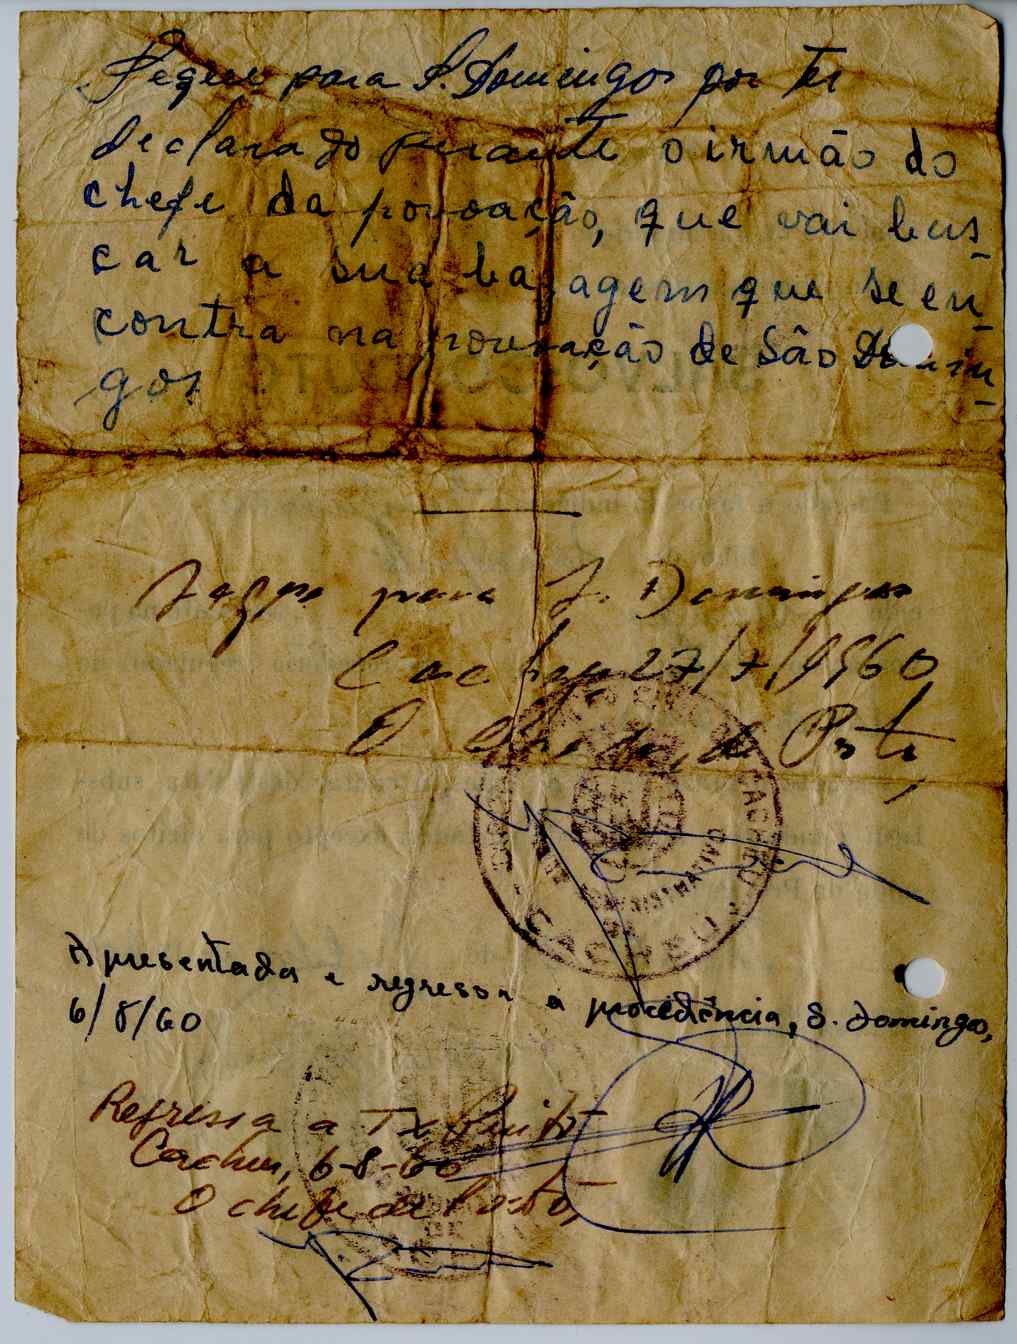 Segue para S. Domingos por ter
declarado perante o irmão do
chefe da povoação, que vai bus-
car a sua bagagem que se en-
contra na povoação de São Domin-
gos
Segue para S. Domingos
Cacheu, 27/7/1960
O Chefe do Posto,
CACHEU
ADMINISTRATIVO
CACHEU
Apresentada e regressa à procedência, S. Domingos,
6/8/60
Regressa a
Cacheu, 6-8-60
O chefe de Posto,